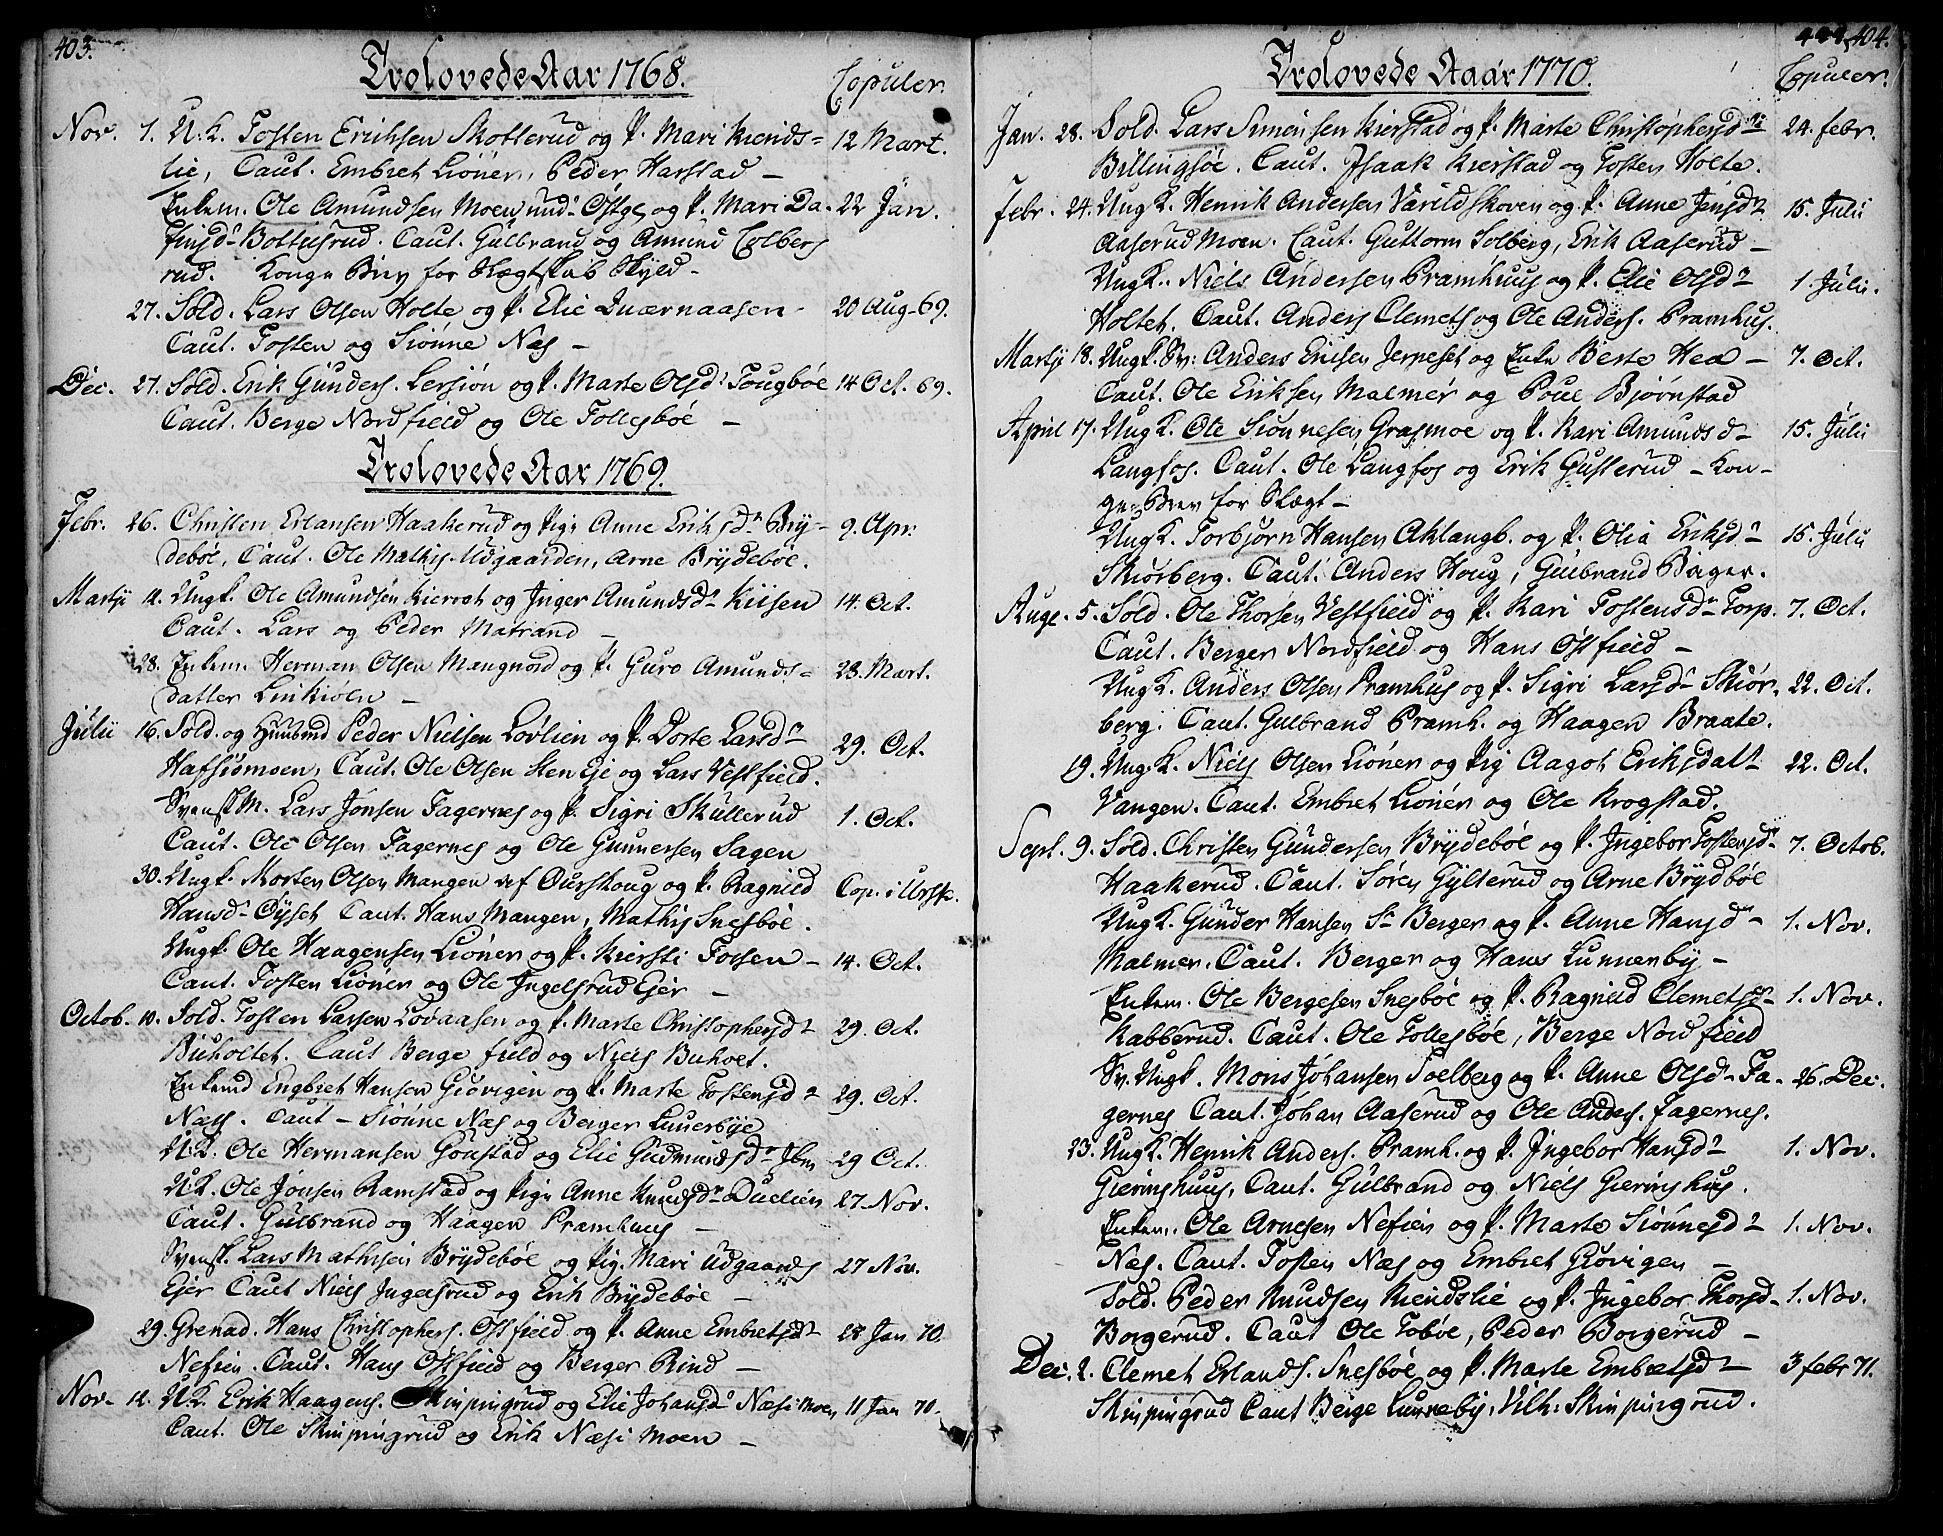 403.
Trolovede Aar 1768. Copuler.
Nov. 1. U. K. Tosten Erichsen Skotterud og P. Mari Kiends= 12 Mart.
lie, Caut. Embret Liöner, Peder Harstad —
Enkem. Ole Amundsen Moen und. Östge og P. Mari Da- 22 Jan.
finsdr Bottelsrud. Caut. Gulbrand og Amund Colbers
rud. Konge Brev for Slægtskab Skyld —
27. Sold. Lars Olsen Holte og P. Elie Quærnaasen - 20 Aug. 69.
Caut. Tosten og Siönne Næs —
Dec. 27. Sold. Erik Gunders. Lersiön og P. Marte Olsdr Tougböe 14 Oct. 69.
Caut. Berge Nordfield og Ole Tollesböe —
Trolovede Aar 1769.
Febr. 26. Christen Erlansen Haakerud og Pige Anne Eriksdr Bry- 9. Apr.
deböe, Caut. Ole Mathis. Udgaarden, Arne Brydeböe.
Martji 12. Ungk. Ole Amundsen Kierret og Inger Amundsdr Kiilsen 14. Oct.
Caut. Lars og Peder Matrand —
28. Enkem. Herman Olsen Mangnord og P. Guro Amunds= 28. Mart.
datter Linkiölen —
Julii 16. Sold. og Huusmd Peder Nielsen Lövlien og P. Dorte Larsdr 29. Oct.
Hafsiömoen, Caut. Ole Olsen Sten Eje og Lars Vestfield.
Svensk M. Lars Jönsen Fagernes og P. Sigri Skullerud 1. Oct.
Caut. Ole Olsen Fagernes og Ole Gunnersen Sagen
30. Ungk. Morten Olsen Mangen af Ourskoug og P. Ragnild Cop. i Urske.
Hansdr Öyset Caut. Hans Mangen, Mathis Snesböe.
Ungk. Ole Haagensen Liöner og P. Kiersti Fossen — 14. Oct.
Caut. Tosten Liöner og Ole Ingelsrud Ejer —
Octob. 10. Sold. Tosten Larsen Lövaasen og P. Marte Christophersdr 29. Oct.
Buholtet. Caut Berge field og Niels Buholt.
Enkemd Engbret Hansen Giövigen og P. Marte Tostensdr 29. Oct.
Næss. Caut — Siönne Næs og Berger Lunerbye
U.K. Ole Hermansen Gönstad og Elie Gudmundsdr Ibm 29 Oct.
U.K. Ole Jönsen Ramstad og Pige Anne Knudsdr Duelien 27. Nov.
Caut. Gulbrand og Haagen Pramhuus —
Svensk. Lars Mathisen Brydeböe og Pig. Mari Udgaards 27 Nov.
Ejer Caut Niels Ingelsrud og Erik Brydeböe —
29. Grenad. Hans Christophers. Ostfield og P. Anne Embretsdr 28 Jan 70.
Nefsien. Caut. Hans Ostfield og Berger Rind —
Nov. 12. U.K. Erik Haagens. Skinpingrud og Elie Johansdr Næsimoen 11 Jan 70.
Caut. Ole Skinpingrud og Erik Næsimoen —
404.
Trolovede Aaar 1770. Copuler.
Jan. 28. Sold. Lars Simensen Kierstad og P. Marte Christophersdr 24. febr.
Billingsöe. Caut. Isaak Kierstad og Tosten Holte.
Febr. 24. Ung K. Henrik Andersen Varildskoven og P. Anne Jensdr 15. Julii
Aaserud Moen. Caut. Guttorm Solberg, Erik Aaserud —
Ung K. Niels Andersen Pramhuus og P. Elie Olsdr 1. Julii.
Holtet. Caut. Anders Clemets og Ole Anders. Pramhus.
Martji 18. Ungk. Sv: Anders Erichsen Jerpeset og Enke Berte Hea — 7. Oct.
Caut. Ole Eriksen Malmer og Poul Bjørnstad
April 17. Ung K. Ole Siönnesen Grasmoe og P. Kari Amundsd- 15. Julii
Langfos. Caut. Ole Langfos og Erik Gusterud — Kon-
ge-Brev for Slægt —
Ung K. Torbjørn Hansen Aklangb. og P. Olia Eriksdr 15. Julii
Skiørberg. Caut. Anders Houg, Gulbrand Bager.
Aug. 5. Sold. Ole Thorsen Vestfield og P. Kari Tostensdr Torp. 7. Oct.
Caut. Berger Nordfield og Hans Östfield —
Ung K. Anders Olsen Pramhus og P. Sigri Larsdr Skiör- 22. Oct.
berg. Caut. Gulbrand Pramh. og Haagen Braate.
19. Ung K. Niels Olsen Liöner og Pig Aagot Eriksdatr 22. Oct.
Vangen. Caut. Embret Liöner og Ole Krogstad.
Sept. 9. Sold. Christen Gundersen Brydeböe og P. Ingebor Tostensdr 7. Octob.
Haakerud. Caut. Sören Gylterud og Arne Brydböe
Ung K. Gunder Hansen Sr Berger og P. Anne Hansdr 1. Nov.
Malmer. Caut. Berger og Hans Lunnerby —
Enkem. Ole Bergesen Snesböe og P. Ragnild Clemetsdr 1. Nov.
Kabberud. Caut. Ole Tollesböe, Berge Nordfield
Sv. Ungk. Mons Johansen Soelberg og P. Anne Olsdr Fa- 26. Dec.
gernes Caut. Johan Aaserud og Ole Anders. Fagernes.
23. Ung K. Henrik Anders. Pramh. og P. Ingebor Hansdr 1. Nov.
Gieringhuus, Caut. Gulbrand og Niels Gieringhus.
Enkem. Ole Arnesen Nefsien og P. Marte Siönnesdr 1. Nov.
Næs. Caut. Tosten Næs og Embret Giövigen —
Sold. Peder Knudsen Kiendslie og P. Ingebor Thorsd- 1. Nov.
Borgerud. Caut Ole Toböe, Peder Borgerud —
Dec. 2. Clemet Erlands. Snesböe og P. Marte Embretsdr 3 febr 71.
Skinpingrud Caut Berge Lunneby, Vilh: Skinpingrud.